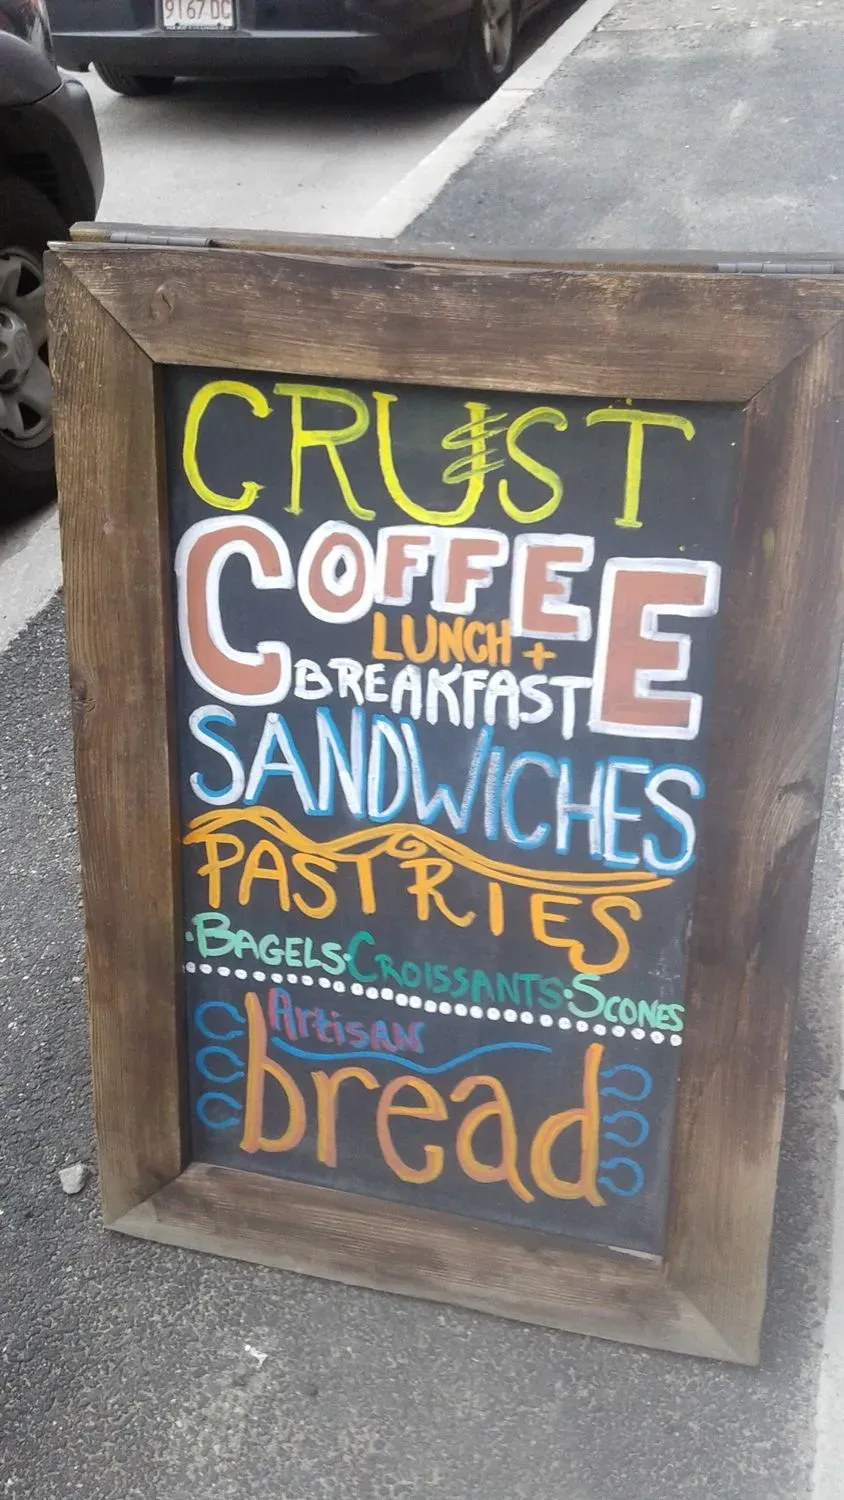 9167 DC
CRUST
COFFEE
LUNCH +
BREAKFAST
SANDWICHES
PASTRIES
·BAGELS·CROISSANTS·SCONES
Artisan
bread